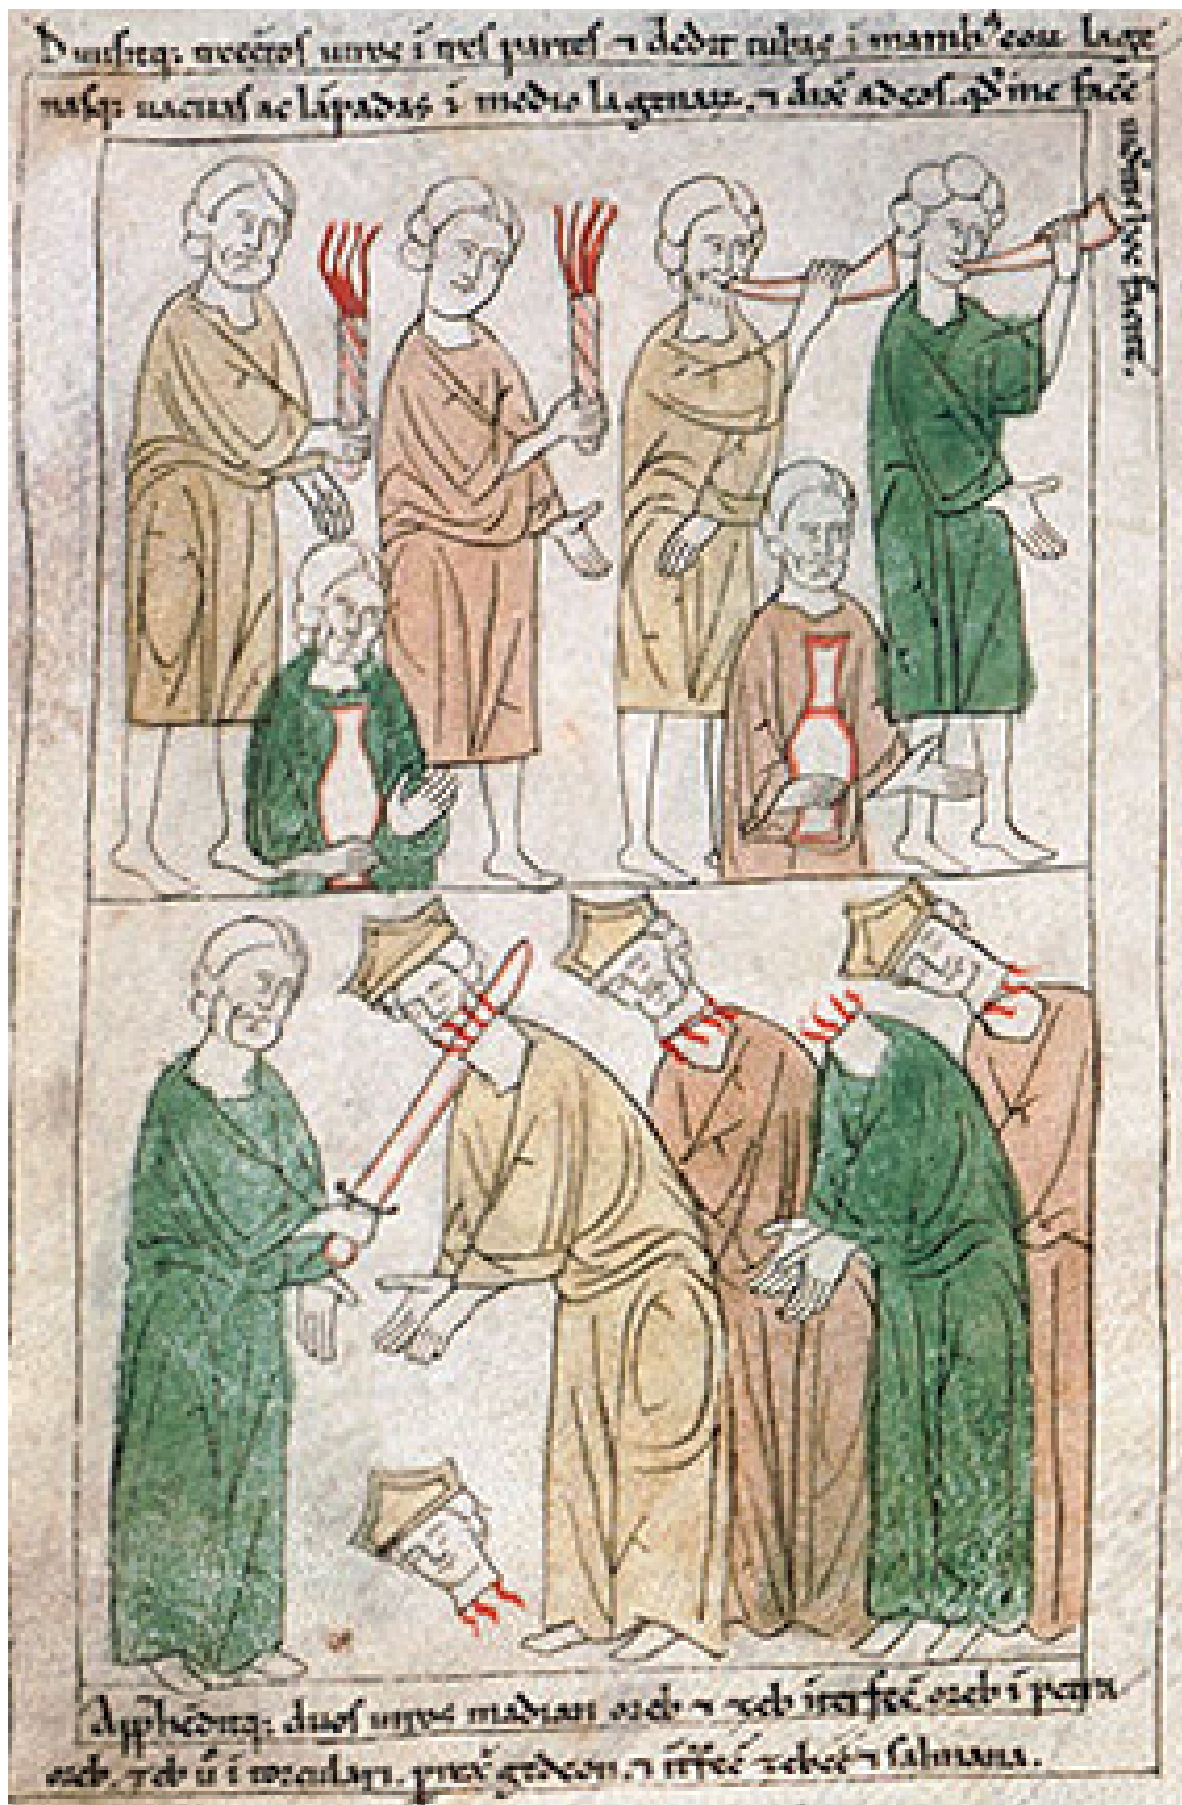 Diuisitq; trecētos uiros ī tres partes ⁊ dedit tubas ī manib' eoꝝ lage
nasq; uacuas ac lāpadas ī medio lagenaꝝ. ⁊ dix̄ ad eos. qd' me facē
uideritis hoc facite.
Apphēditq; duos uiros madian oreb ⁊ zeb īterfec̄ oreb ī petra
oreb. zeb ū ī torculari. gedeon. ⁊ īt'fec̄ zebee ⁊ salmana.